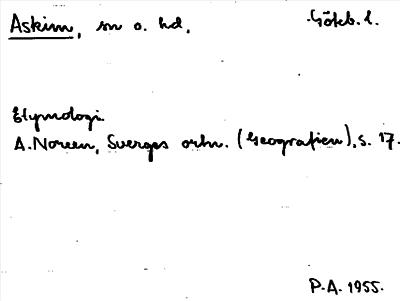 Askim, sn o. hd, Göteb. l.
Etymologi
A. Noreen, Sverges ortn. (Geografien), s. 17.
P.A. 1955.